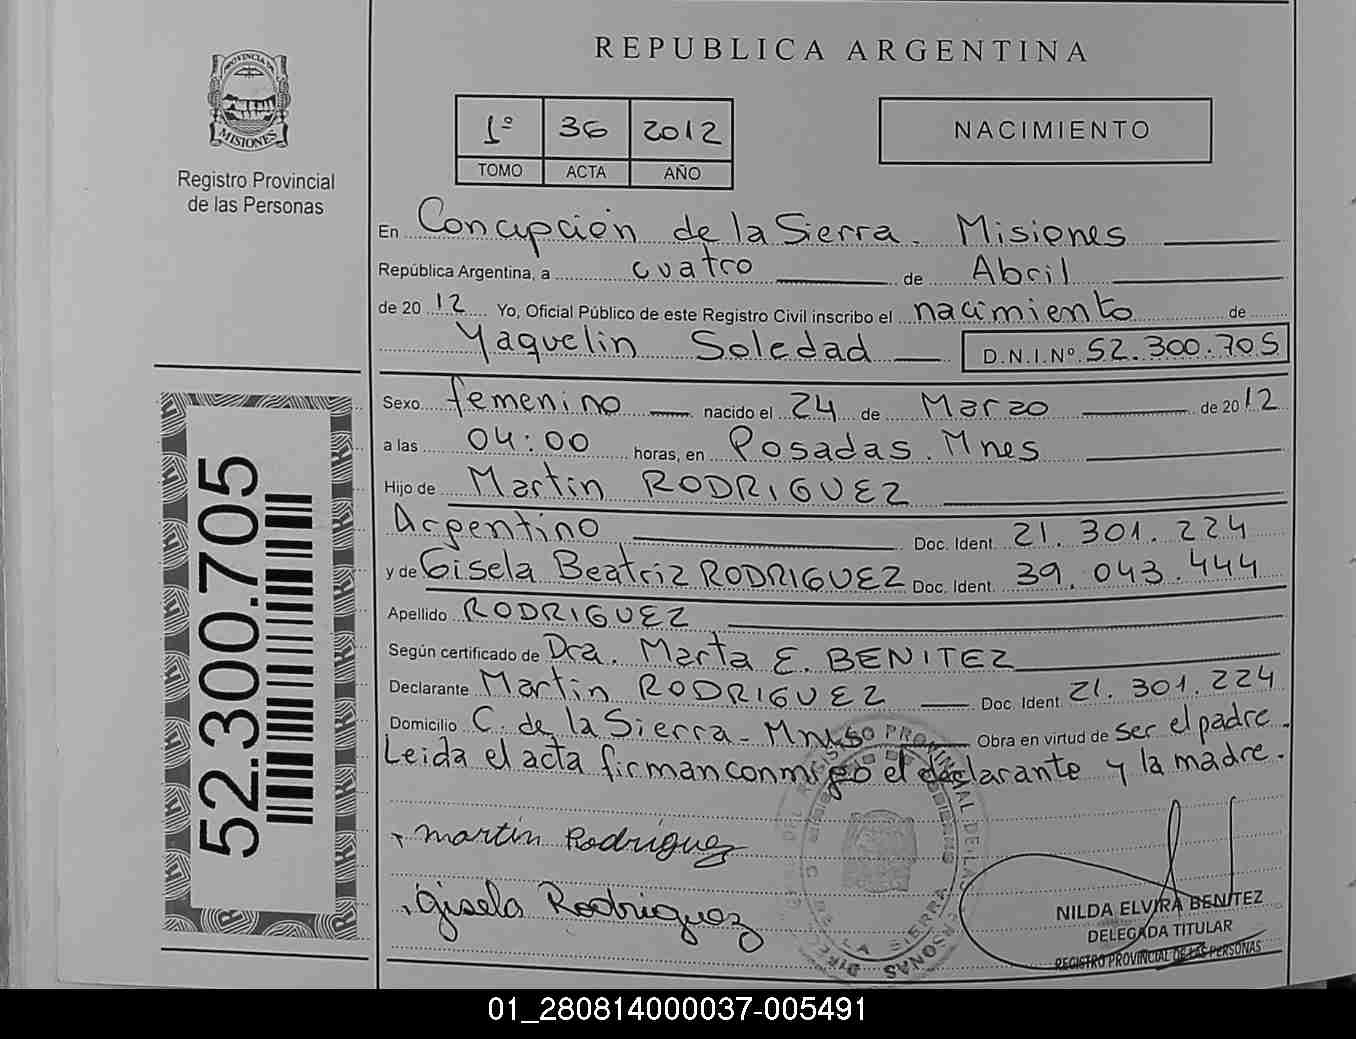 REPUBLICA ARGENTINA
PROVINCIA DE
MISIONES
Registro Provincial
de las Personas
1º 36 2012
TOMO ACTA AÑO
NACIMIENTO
En Concepción de la Sierra. Misiones
República Argentina, a cuatro de Abril
de 2012 Yo, Oficial Público de este Registro Civil inscribo el nacimiento de
Yaquelin Soledad D.N.I.Nº 52.300.705
Sexo femenino nacido el 24 de Marzo de 2012
a las 04:00 horas, en Posadas. Mnes
Hijo de Martin RODRIGUEZ
Argentino Doc. Ident. 21.301.224
y de Gisela Beatriz RODRIGUEZ Doc. Ident. 39.043.444
Apellido RODRIGUEZ
Según certificado de Dra. Marta E. BENITEZ
Declarante Martin RODRIGUEZ Doc. Ident 21.301.224
Domicilio C. de la Sierra - Mnes Obra en virtud de ser el padre.
Leida el acta firman conmigo el declarante y la madre.
martin Rodriguez
Gisela Rodriguez
NILDA ELVIRA BENITEZ
DELEGADA TITULAR
REGISTRO PROVINCIAL DE LAS PERSONAS
52.300.705
01_280814000037-005491